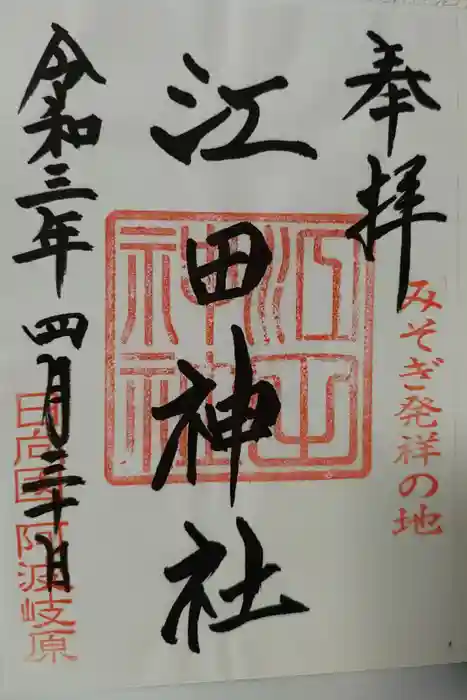 奉拝
みそぎ発祥の地
江田神社
江田神社
令和三年四月三十日
日向国阿波岐原